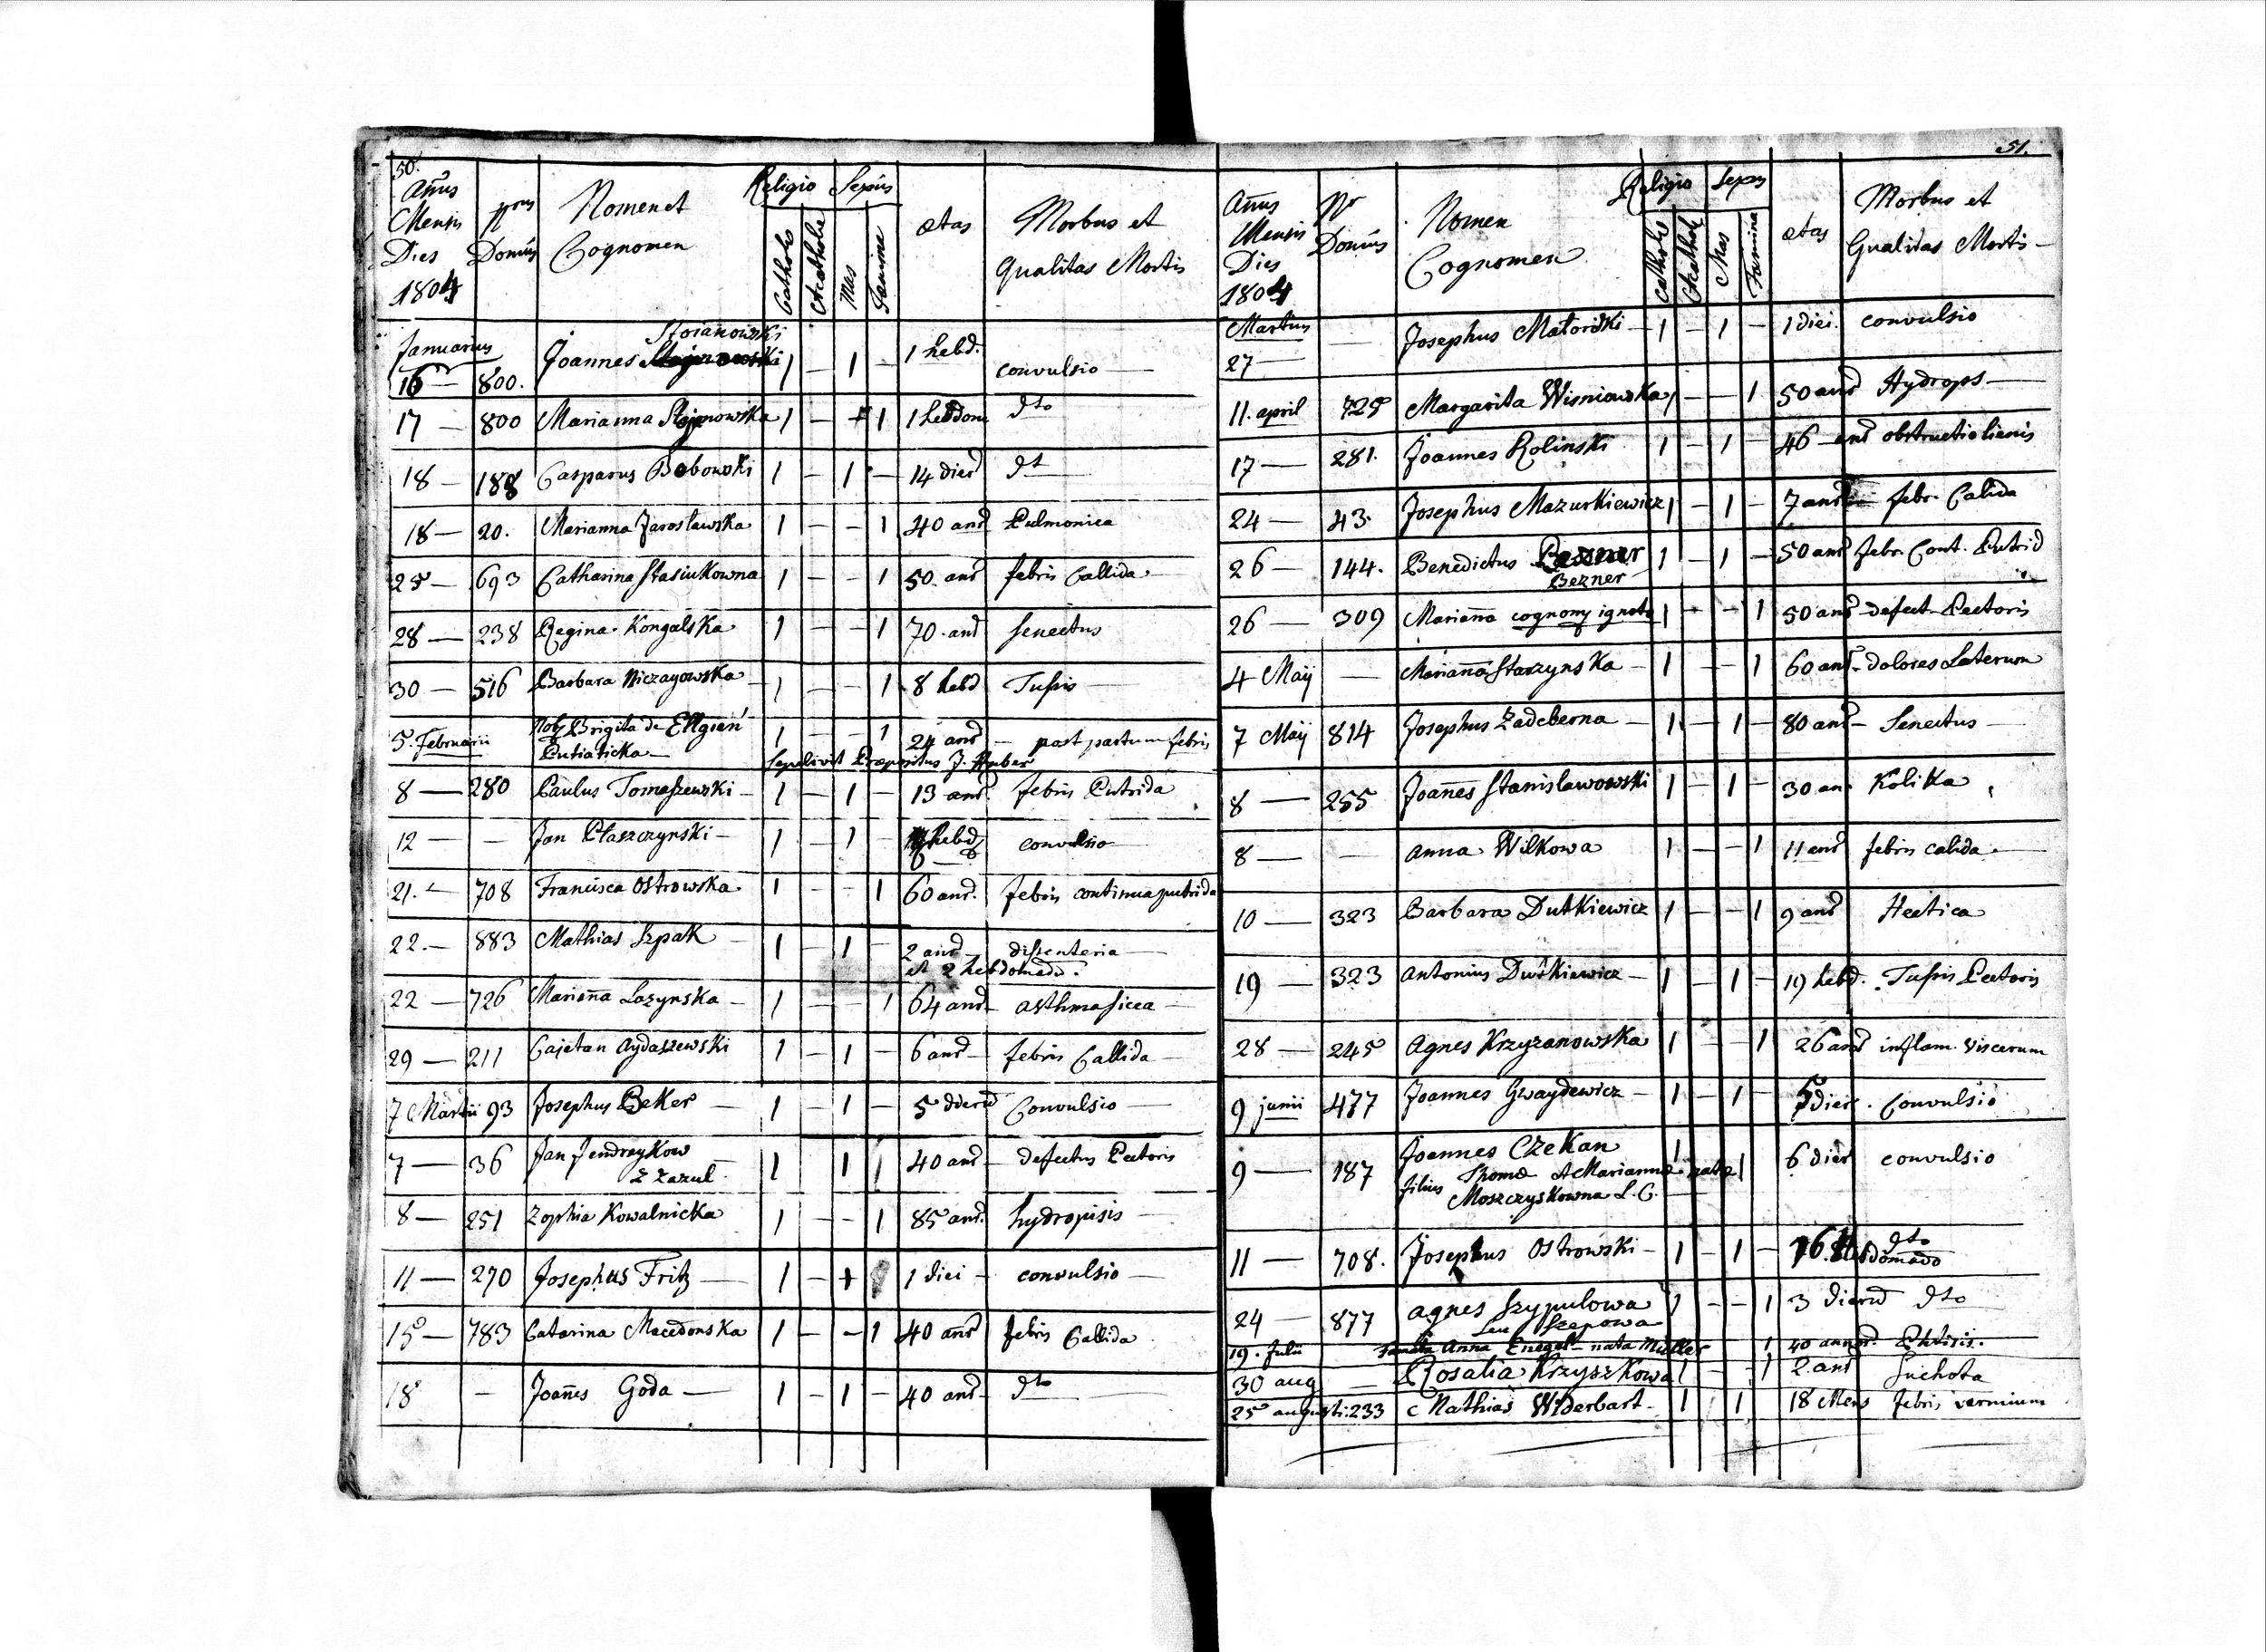 50.
Añus
Mensis
Dies
1804
Nrus
Domus
Nomen et
Cognomen
Religio
Catholi
Acatholi
Sexus
Mas
Famina
Ætas
Morbus et
Qualitas Mortis
Januarius
Stoianowski
16 — 800. Joannes 1 — 1 — 1 hebd. convulsio —
17 — 800 Marianna Stojanowska 1 — 1 1 hebdom dto
18 — 188 Casparus Bobowski 1 — 1 — 14 dier dt
18 — 20. Marianna Jarosławska 1 — — 1 40 anor Pulmonica
25 — 693 Catharina Stasiukowna 1 — — 1 50. anor febris Callida
28 — 238 Regina Kongalska 1 — — 1 70. anor Senectus
30 — 516 Barbara Niczayowska 1 — — 1 8 hebd Tussis —
5. Februarii Nob Brigita de Ellgien 1 — — 1 24 anor — post partum febris
Putiaticka — Sepelivit Præpositus J. Huber
8 — 280 Paulus Tomaszewski — 1 — 1 — 13 anor. febris Putrida
12 — — Jan Płaszczynski — 1 — 1 — hebd convulsio
21. — 708 Francisca Ostrowska 1 — — 1 60 anor. febris continua putrida
22. — 883 Mathias Szpak — 1 — 1 — 2 anor — dissenteria —
et 2 hebdomad.
22 — 726 Mariana Lazynska — 1 — — 1 64 anor — asthma sicca —
29 — 211 Cajetan Aydaszewski 1 — 1 — 6 anor — febris Callida —
7 Martii 93 Josephus Beker — 1 — 1 — 5 dierum Convulsio —
7 — 36 Jan Jendreykow 1 1 1 40 anor — defectus Pectoris
z Zazul
8 — 251 Zophia Kowalnicka 1 — — 1 85 anor. hydropisis —
11 — 270 Josephus Fritz — 1 — 1 1 diei — convulsio —
15 — 783 Catarina Macedonska 1 — — 1 40 anor febris Callida
18 — Joañes Goda — 1 — 1 — 40 anor — dto
51.
Añus
Mensis
Dies
1804
Nr
Domus
Nomen
Cognomen
Religio
Catholi
Acathol
Sexus
Mas
Famina
Ætas
Morbus et
Qualitas Mortis —
Martius
27 — — Josephus Matorski — 1 — 1 — 1 diei. convulsio
11. april 725 Margarita Wisniowska 1 — — 1 50 anor Hydrops —
17 — 281. Joannes Rolinski 1 — 1 — 46 — anor obstructio lienis
24 — 43. Josephus Mazurkiewicz 1 — 1 — 7 anor febr. Calida
26 — 144. Benedictus Bezner 1 — 1 — 50 anor febr. Cont. Putrid
Bezner
26 — 309 Mariana cognom ignoto 1 — — 1 50 anor — defect Pectoris
4 Maij — Mariana Starzynska — 1 — — 1 60 anor — dolores Laterum
7 Maij 814 Josephus Zadeberna — 1 — 1 — 80 anor — Senectus —
8 — 255 Joañes Stanislawowski 1 — 1 — 30 an. Kolika
8 — — Anna Wilkowa 1 — — 1 11 anor febris calida —
10 — 323 Barbara Dutkiewicz 1 — — 1 9 anor Hectica
19 — 323 Antonius Dutkiewicz — 1 — 1 — 19 hebd. Tussis Pectoris
28 — 245 Agnes Krzyzanowska 1 — — 1 26 anor inflam. viscerum
9 junii 477 Joannes Gwaydewicz — 1 — 1 — 5 dier. Convulsio
9 — 187 Joannes Czekan 1 1 6 dier convulsio
filius Thomæ et Mariannæ natæ
Moszczyskowna L. C.
11 — 708. Josephus Ostrowski — 1 — 1 — 16. hebdomado dto
24 — 877 Agnes Szypulowa 1 — — 1 3 dierum dto
seu Szepowa
19. Julii Anna — nata Müller 1 40 annor. Phtisis.
30 aug — Rosalia Krzyszkowa 1 — 1 2 anor Suchota
25 augusti: 233 Mathias Widerbart — 1 1 18 Mens febris vermium